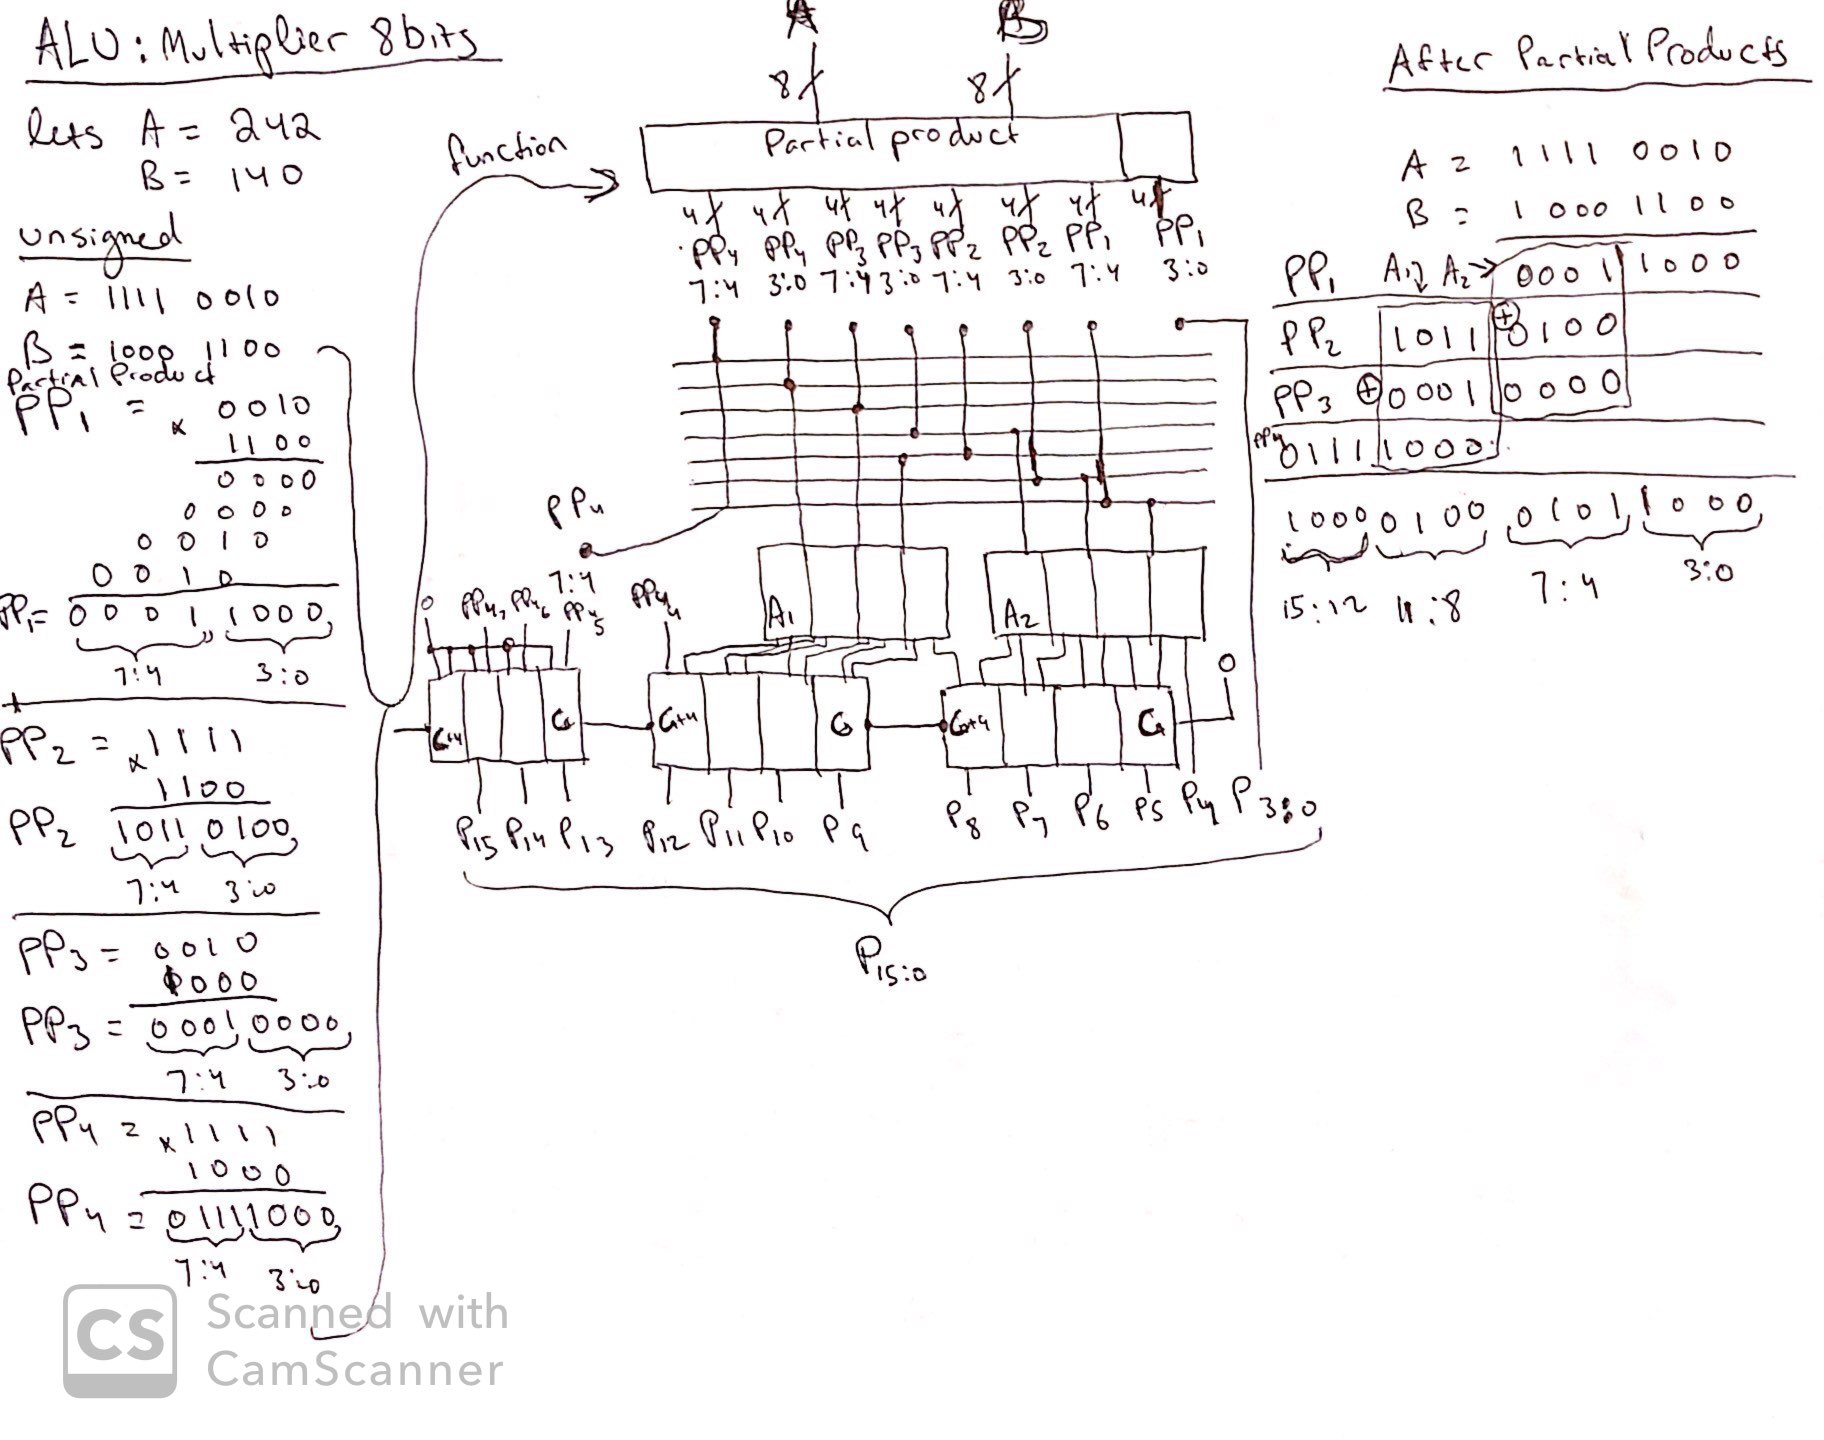 ALU: Multiplier 8bits
lets A = 242
B = 140
unsigned
A = 1111 0010
B = 1000 1100
Partial Product
PP1 = 0010
x 1100
0000
0000
0010
0010
PP1 = 0001 1000
7:4 3:0
PP2 = x 1111
1100
PP2 1011 0100
7:4 3:0
PP3 = 0010
1000
PP3 = 0001 0000
7:4 3:0
PP4 = x 1111
1000
PP4 = 0111 1000
7:4 3:0
function
A B
8 8
Partial product
4 4 4 4 4 4 4 4
PP4 PP4 PP3 PP3 PP2 PP2 PP1 PP1
7:4 3:0 7:4 3:0 7:4 3:0 7:4 3:0
PP4
7:4
0 PP47 PP46 PP45 PP44
A1 A2
0
Ci+4 Ci Ci+4 Ci Ci+4 Ci
P15 P14 P13 P12 P11 P10 P9 P8 P7 P6 P5 P4 P3:0
P15:0
After Partial Products
A = 1111 0010
B = 1000 1100
PP1 A1 A2 0001 1000
PP2 1011 + 0100
PP3 + 0001 0000
PP4 0111 1000
1000 0100 0101 1000
15:12 11:8 7:4 3:0
CS Scanned with
CamScanner